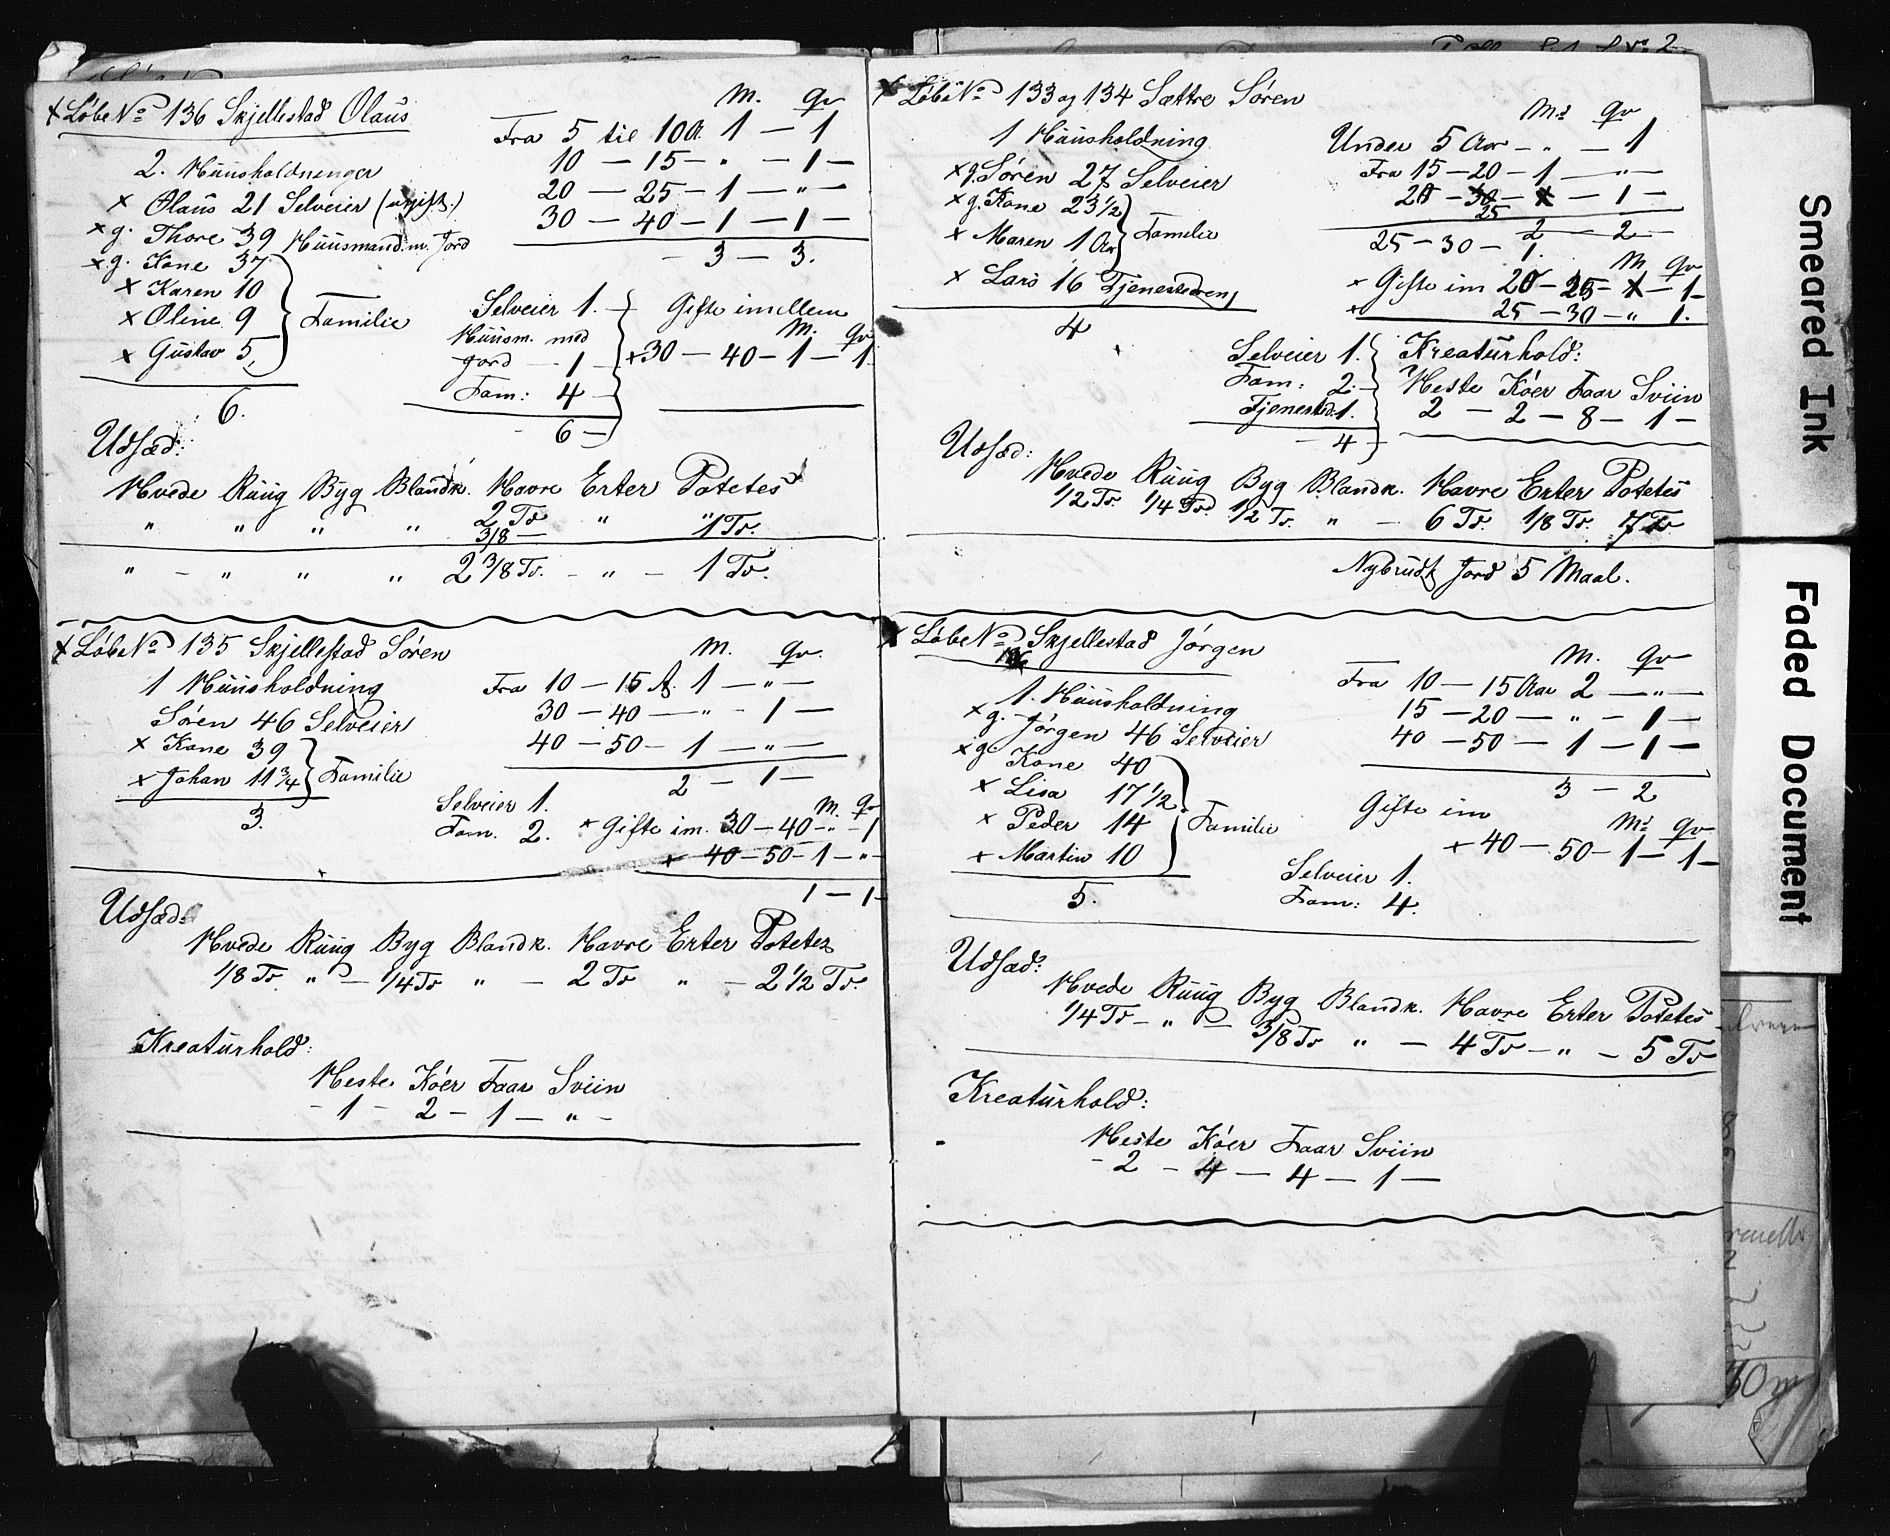 x Løbe No 136 Skjellestad Olaus
2. Huusholdninger
x Olaus 21 Selveier (ugift.)
x g. Thore 39 Huusmand m. Jord
x g. Kone 37
x Karen 10
x Oline 9 } Familie
x Gustav 5.
6.
M. Qv
Fra 5 til 10 A. 1 — 1
10 — 15 — " — 1 —
20 — 25 — 1 — " —
30 — 40 — 1 — 1 —
3 — 3.
Selveier 1. —
Huusm. med
Jord — 1 —
Fam: 4 —
6 —
Gifte imellem
M. Qv
x 30 — 40 — 1 — 1
Udsæd:
Hvede Ruug Byg Blandk. Havre Erter Potetes
" " " " 2 Tr " " 1 Tr.
3/8 —
" — " " " 2 3/8 Tr. — " — 1 Tr.
x Løbe No 135 Skjellestad Søren
1 Huusholdning
Søren 46 Selveier
x Kone 39
x Johan 11 3/4 } Familie
3.
M. Qv.
Fra 10 — 15 A. 1 — " —
30 — 40 — " — 1 —
40 — 50 — 1 — " —
2 — 1 —
Selveier 1.
Fam. 2.
M. Qv
x Gifte im. 30 — 40 — " — 1
x 40 — 50 — 1 — " —
1 — 1
Udsæd:
Hvede Ruug Byg Blandk. Havre Erter Potetes
1/8 Tr. " — 1/4 Tr " — 2 Tr " — 2 1/2 Tr.
Kreaturhold:
Heste Køer Faar Sviin
— 1 — 2 — 1 — " —
x Løbe No 133 og 134 Sættre Søren
1 Huusholdning
x g. Søren 27 Selveier
x g. Kone 23 1/2
x Maren 1 Aar } Familie
x Lars 16 Tjenestedreng
4
M. Qv
Under 5 Aar — " — 1
Fra 15 — 20 — 1 — " —
20 — 30 — x — 1 —
25
2 — 2 —
25 — 30 — 1.
M Qv
x Gifte im 20 — 25 — 1 — 1 —
x 25 — 30 — " 1.
Selveier 1.
Fam: 2. —
Tjenestd. 1.
— 4 —
Kreaturhold:
Heste Køer Faar Sviin
2 — 2 — 8 — 1 —
Udsæd:
Hvede Ruug Byg Blandk. Havre Erter Potetes
1/2 Tr. 1/4 Tr. 1/2 Tr. " — 6 Tr. 1/8 Tr. 7 Tr
Nybrudt Jord 5 Maal.
x Løbe No Skjellestad Jørgen
1. Huusholdning
x g. Jørgen 46 Selveier
x g. Kone 40
x Lisa 17 1/2
x Peder 14 } Familie
x Martin 10
5.
M. Qv
Fra 10 — 15 Aar 2 — " —
15 — 20 — " — 1 —
40 — 50 — 1 — 1 —
3 — 2
Gifte im
M. Qv
x 40 — 50 — 1 — 1 —
Selveier 1.
Fam: 4.
Udsæd:
Hvede Ruug Byg Blandk. Havre Erter Potetes
1/4 Tr — " — 3/8 Tr " — 4 Tr — " — 5 Tr
Kreaturhold:
Heste Køer Faar Sviin
— 2 — 4 — 4 — 1 —
Smeared Ink
Faded Document